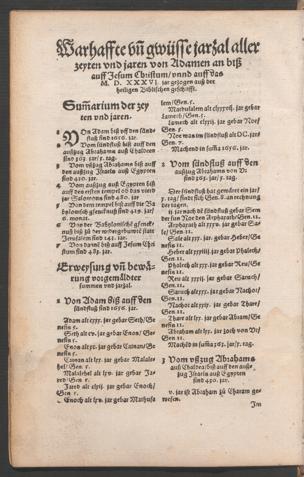 Warhaffte vñ gwüsse jarzal aller
zeyten vnd jaren von Adamen an biß
auff Jesum Christum/ vnnd auff das
M. D. XXXVI. jar gezogen auß der
heiligen Biblischen geschrifft.
Summarium der zey
ten vnd jaren.
1 Von Adam biß vff den sünd
fluß sind 1656. jar.
2 Vom sündfluß biß auff den
außzug Abrahams auß Chaldeen
sind 363. jar/ 5. tag.
3 Vom vßzug Abrahams biß auff
den außzug Israels auß Egypten
sind 430. jar.
4 Vom außzug auß Egypten biß
auff den ersten tempel ob dan vierd
jar Salomons sind 480. jar
5 Von dem tempel biß auff die Ba
bylonisch gfencknuß sind 419. jar/
6. monat.
6 Von der Babylonische gfenck
nuß biß zů der widergebuwte statt
Jerusalem sind 143. jar.
7 Von dannē biß auff Jesum Chri
stum sind 483. jar.
Erweysung vñ bewä-
rung vorgemäldter
summen vnd jarzal.
1 Von Adam biß auff den
sündfluß sind 1656. jar.
Adam alt cxxx. jar gebar Seth/ Ge
nesis 5.
Seth alt cv. jar gebar Enos/ Ge-
nesis 5.
Enos alt xc. jar gebar Cainan/ Ge
nesis 5.
Cainan alt lxx. jar gebar Malale-
hel/ Gen. 5.
Malalehel alt lxv. jar gebar Ja-
red/ Gen. 5.
Jared alt clxij. jar gebar Enoch/
Gen. 5.
Enoch alt lxv. jar gebar Mathusa
lem/ Gen. 5.
Mathusalem alt clxxxvij. jar gebar
Lamech/ Gen. 5.
Lamech alt clxxxij. jar gebar Noe/
Gen. 5.
Noe was im sündfluß alt DC. jar/
Gen. 7.
Machend in summa 1656. jar.
2 Vom sündfluß auff den
außzug Abrahams von Ur
sind 363. jar/ 5. tag.
Der sündfluß hat gewäret ein jar/
tag/ findst stuck Gen. 8. an rechnung
der tagen.
ij. jar nach dē sündfluß gebar Sem
der sun Noe den Arphaxat/ Gen. 11.
Arphaxat alt xxxv. jar gebar Sa-
le/ Gen. 11.
Sale alt xxx. jar gebar Heber/ Ge
nesis 11.
Heber alt xxxiiij. jar gebar Phaleg/
Gen. 11.
Phaleg alt xxx. jar gebar Reu/ Ge
nesis 11.
Reu alt xxxij. jar gebar Saruch/
Gen. 11.
Saruch alt xxx. jar gebar Nachor/
Gen. 11.
Nachor alt xxix. jar gebar Thare/
Gen. 11.
Thare alt lxx. jar gebar Abram/ Ge
nesis 11.
Abraham alt lxv. jar zoch von Ur/
Gen. 11.
Machēd in summa 363. jar/ 5. tag.
3 Vom vßzug Abrahams
auß Chaldea/ biß auff den auß-
zug Israels auß Egypten
sind 430. jar.
v. jar ist Abraham zů Charan ge-
wesen.
Im